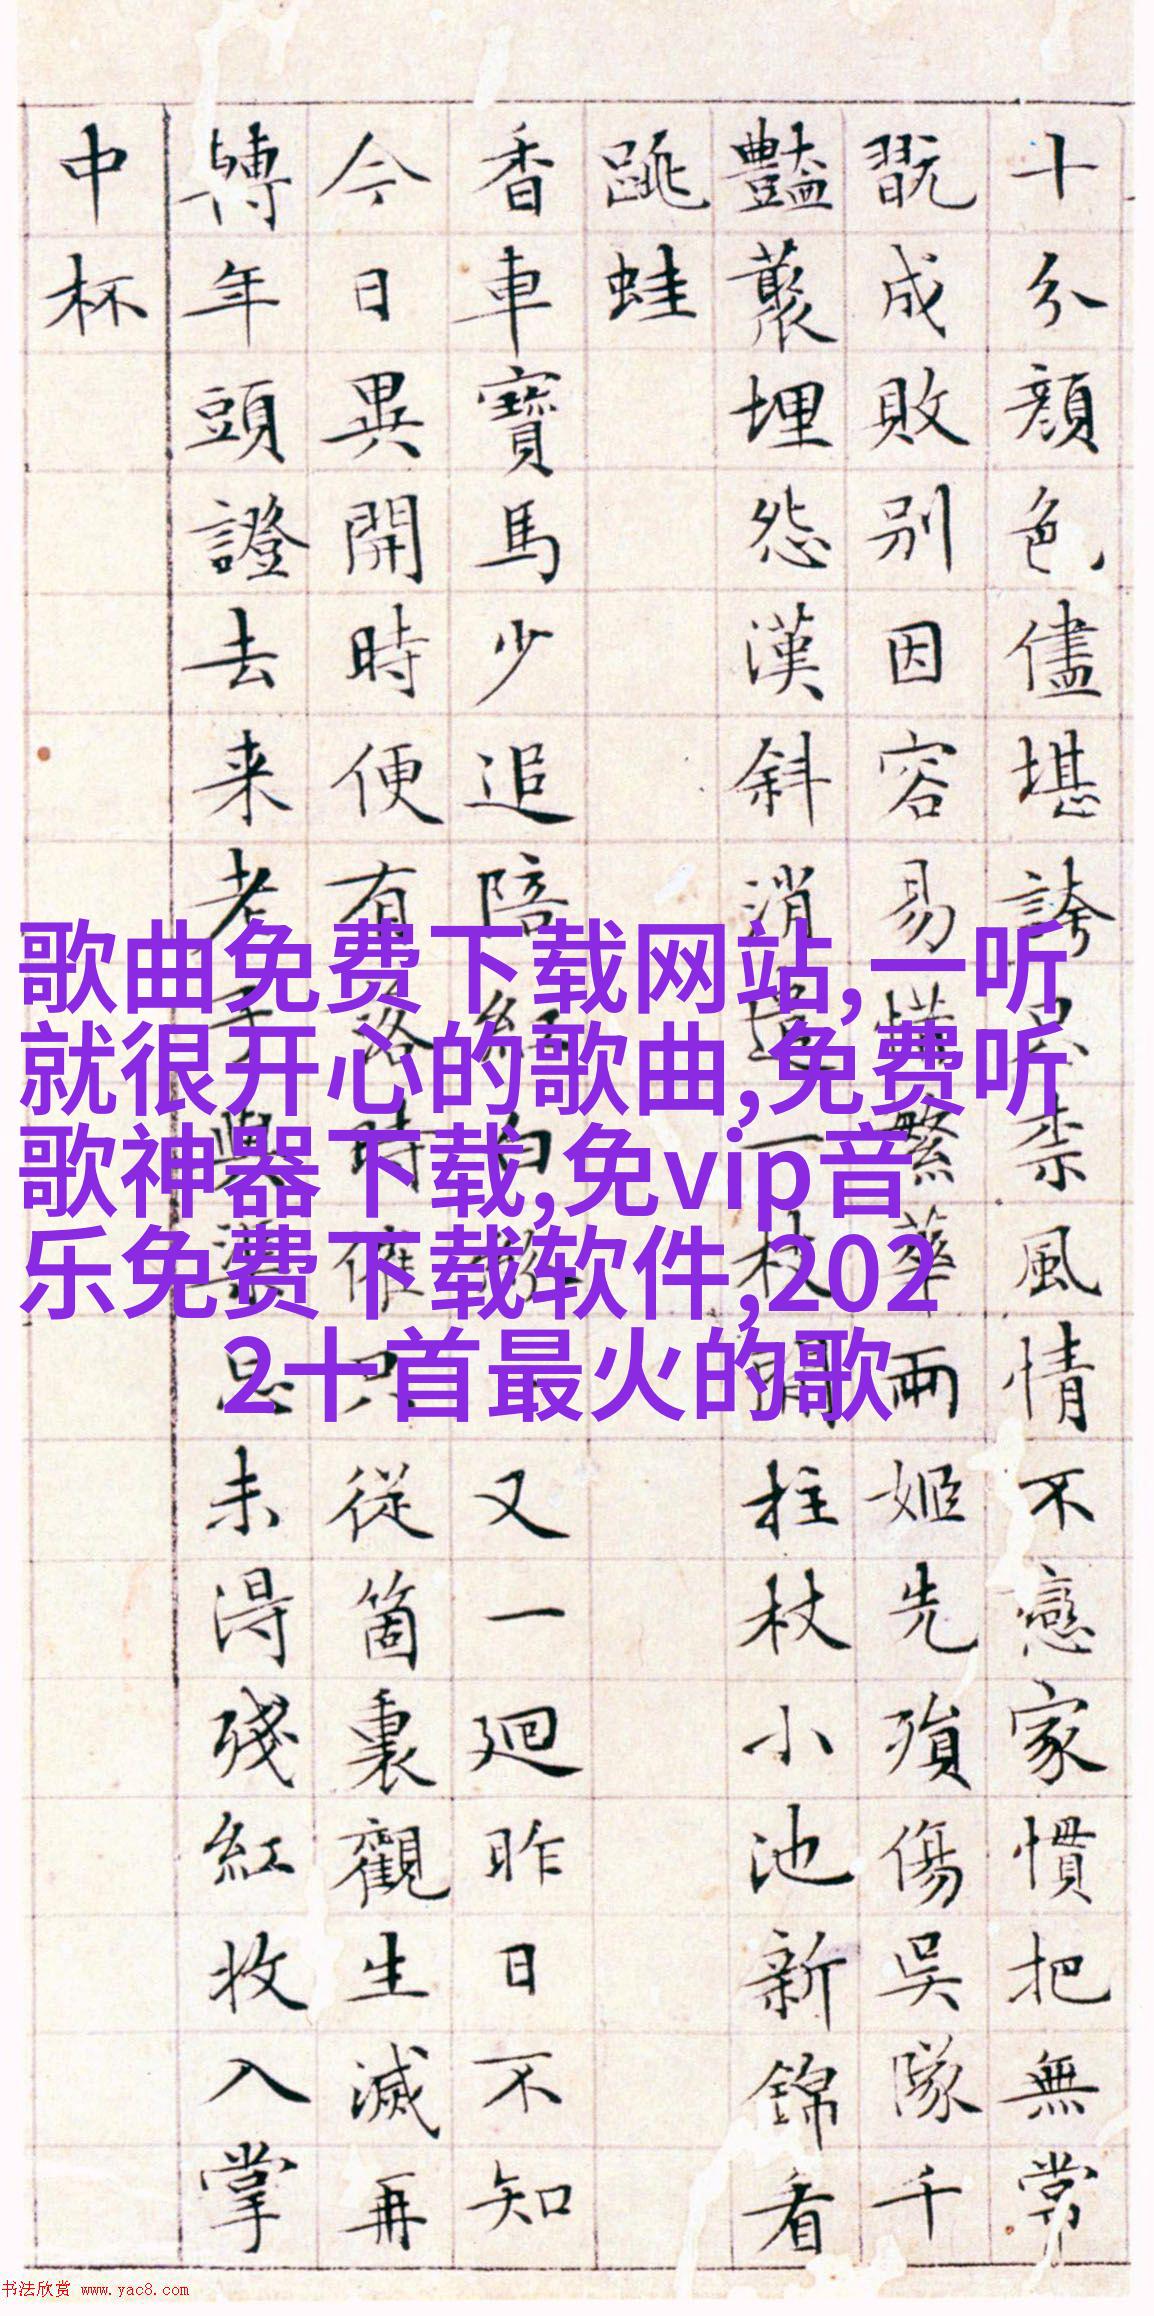 十分顔色儘堪誇只柰風情不戀家慣把無常
翫成敗别因容易繁華兩姬先殞傷吳隊千
豔叢埋怨漢斜消遣一枝閒柱杖小池新錦看
跳蛙
香車寶馬少追陪紅白又一廻昨日不知
今日異開時便有落時催只從箇裏觀生滅再
轉年頭證去来老子與渠忘未淂殘紅收入掌
中杯
歌曲免费下载网站,一听
就很开心的歌曲,免费听
歌神器下载,免vip音
乐免费下载软件,202
2十首最火的歌
书法欣赏 www.yac8.com